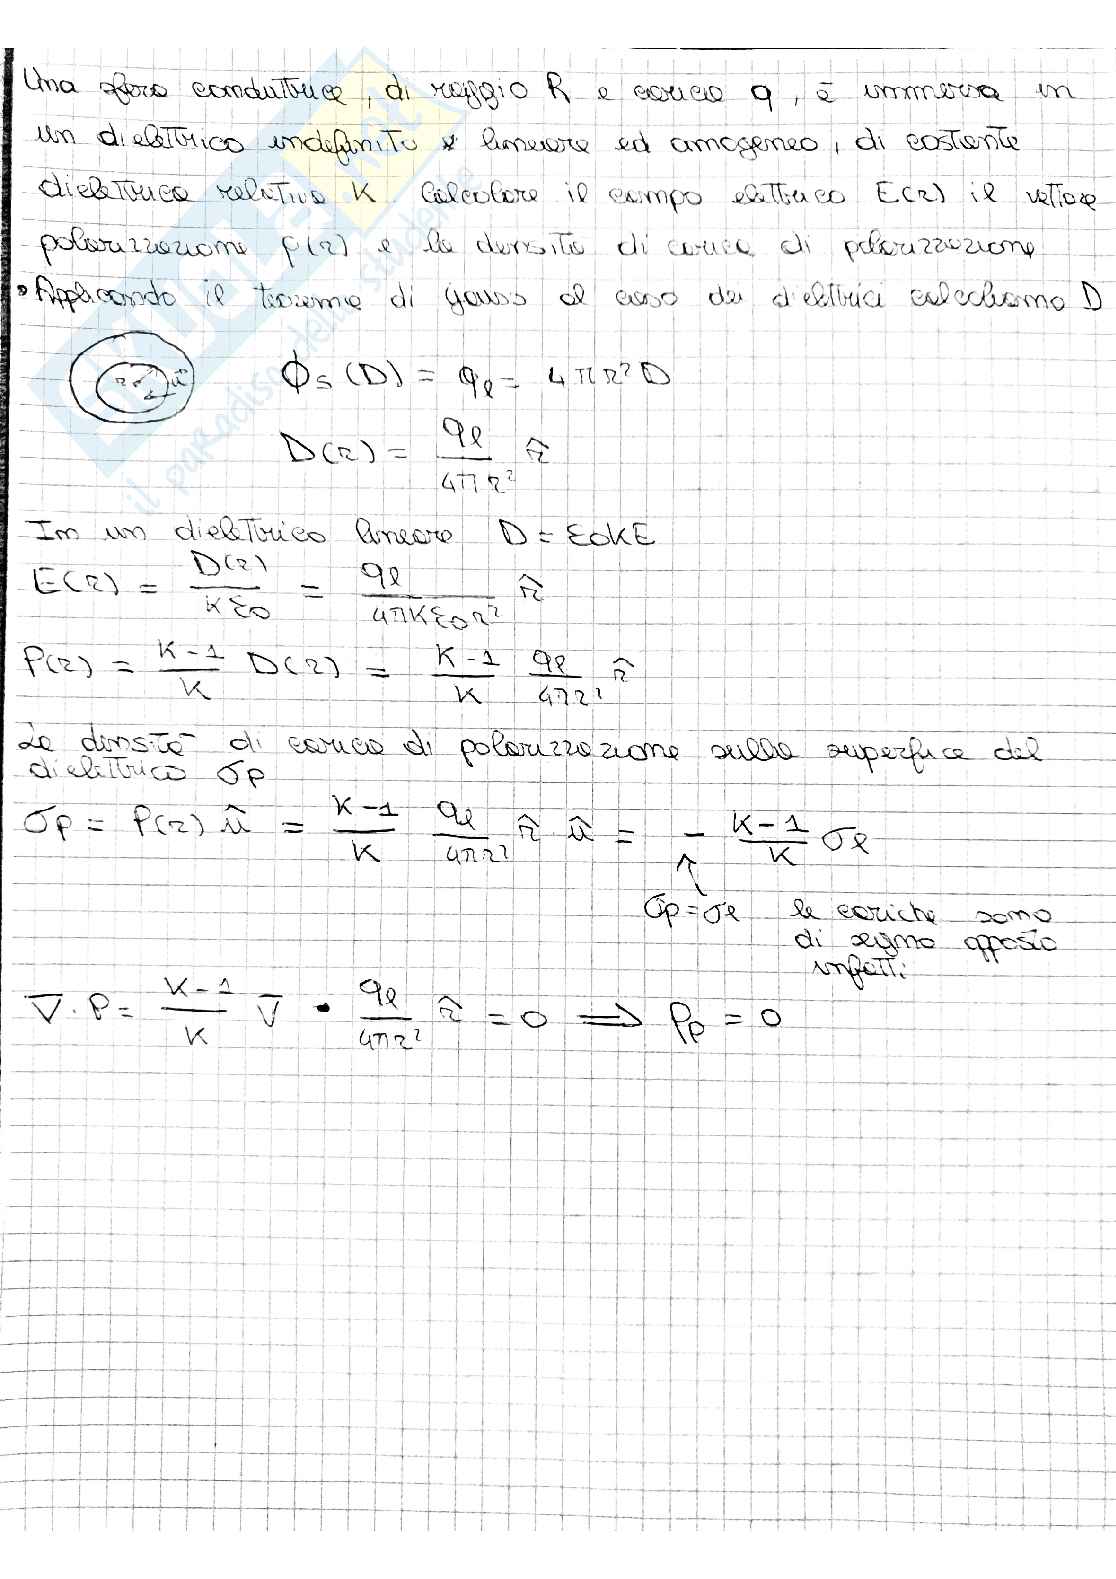 Una sfera conduttrice, di raggio R e carica q, è immersa in
un dielettrico indefinito e lineare ed omogeneo, di costante
dielettrica relativa K. Calcolare il campo elettrico E(r) il vettore
polarizzazione P(r) e la densità di carica di polarizzazione
• Applicando il teorema di Gauss al caso dei dielettrici calcoliamo D
Φs (D) = ql = 4πr² D
D(r) = ql / 4πr² r̂
In un dielettrico lineare D = ε0KE
E(r) = D(r) / Kε0 = ql / 4πKε0r² r̂
P(r) = K-1 / K D(r) = K-1 / K ql / 4πr² r̂
La densità di carica di polarizzazione sulla superfice del
dielettrico σp
σp = P(r) û = K-1 / K ql / 4πr² r̂ û = - K-1 / K σl
σp = σl le cariche sono
di segno opposto
infatti
∇ · P = K-1 / K ∇ · ql / 4πr² r̂ = 0 ⟹ ρp = 0
il paradiso dello studente